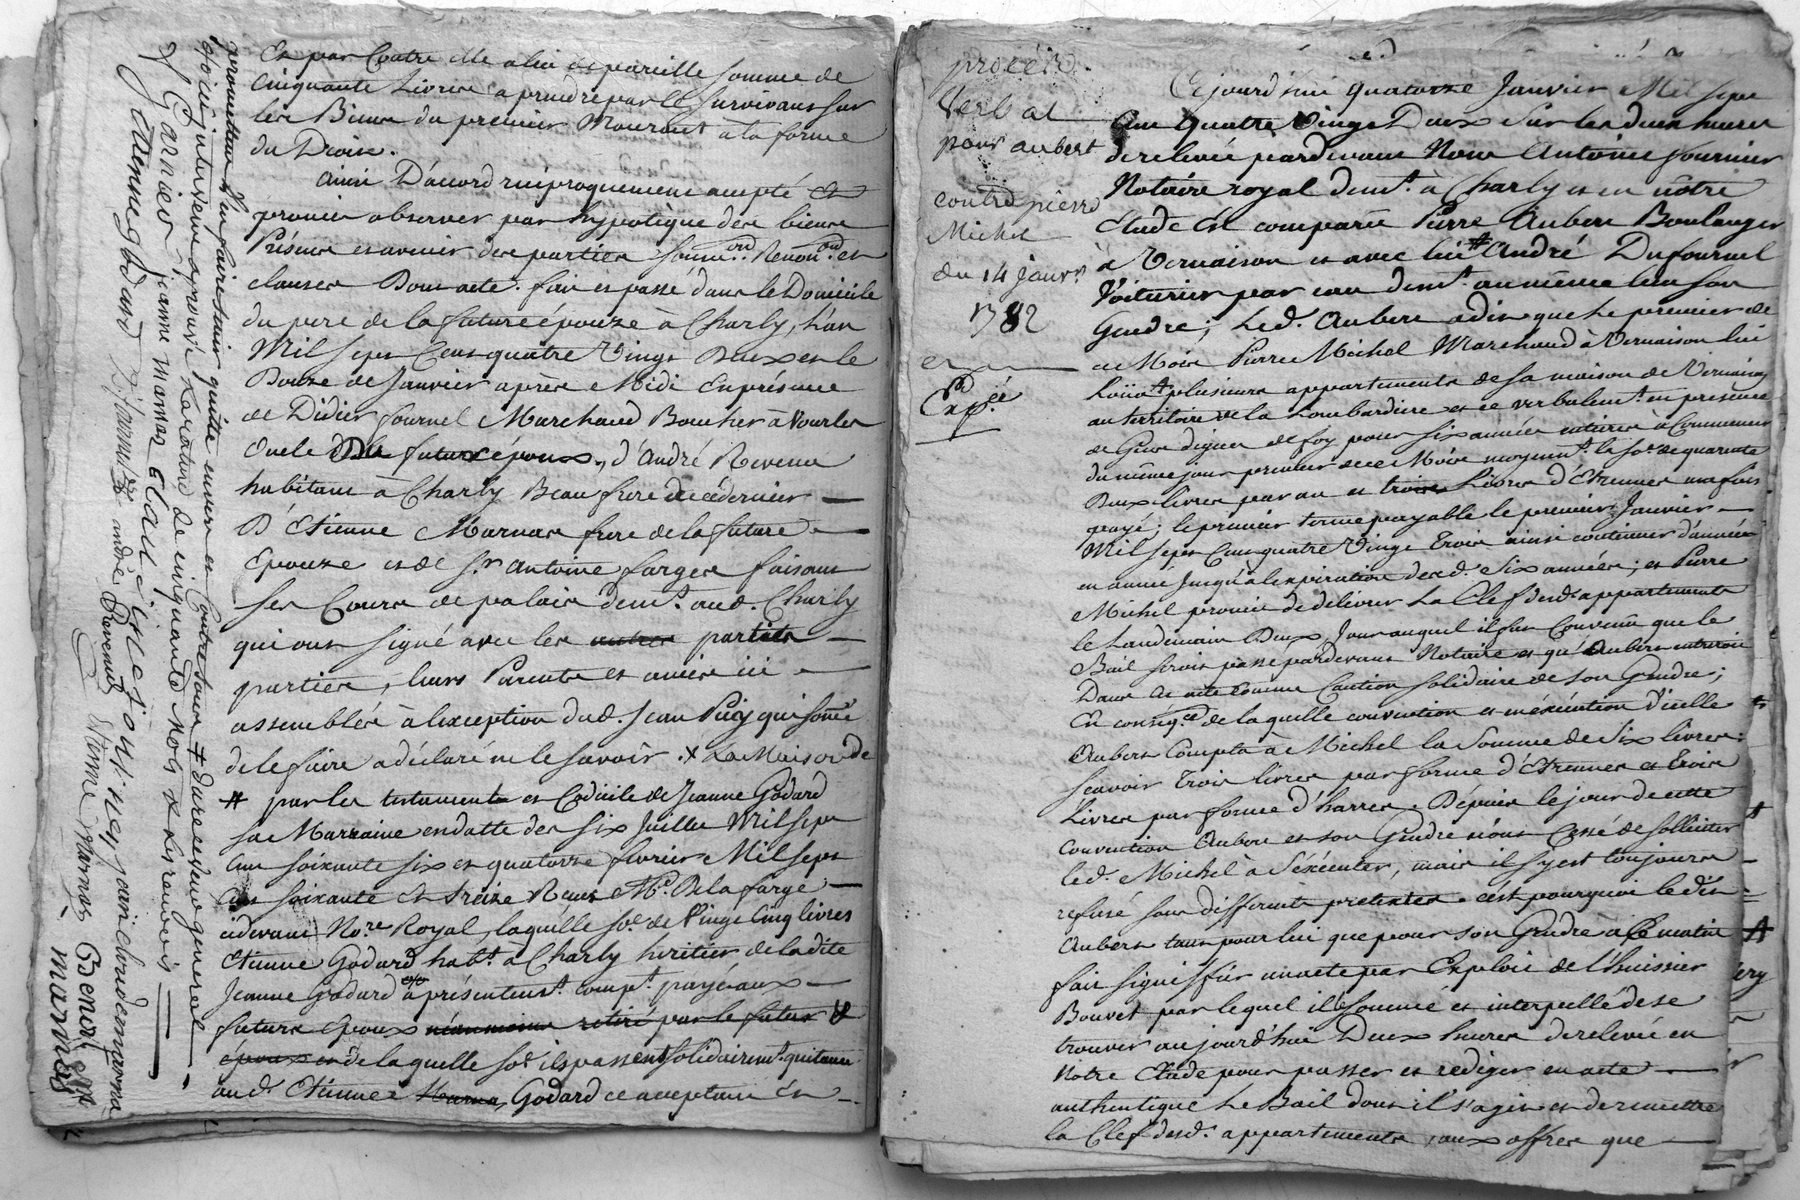 Et par Contre elle a lui de pareille somme de
Cinquante Livres a prendre par le Survivant sur
les Biens du premier Mourant à la forme
du Droit.
ainsi D'accord reciproquement accepté et
promis observer par hypotèque de ses biens
Présens et avenir des parties soum.on Renon.on et
clauses Dont acte. fait et passé dans le Domicile
du pere de la future épouze à Charly, L'an
Mil Sept Cent quatre Vingt Deux et le
Douze de Janvier après Midi En présence
de Didier fournel Marchand Boucher à Vourles
Oncle du futur époux, d'André Revenu
habitant à Charly Beau frere de ce dernier
D'Etienne Marnas frere de la future
Epouze et de S.r Antoine farges faisant
Ses Cours de palais dem.t aud. Charly
qui ont signé avec les
parties, leurs Parents et amis ici
assemblés à l'exception dud. Jean Pucy qui somé
de le faire a déclaré ne le savoir. X La Maison de
# par les testament et Codicile de Jeanne Godard
sa Marraine en datte des six Juillet Mil sept
Cent soixante six et quatorze fevrier Mil sept
Cent soixante et treize Reçus M.e Delafarge
cidevant No.re Royal, laquelle so.e de Vingt Cinq livres
Etienne Godard hab.t à Charly heritier de la dite
Jeanne Godard a présentem.t comp.t payé aux
futurs Epoux néanmoins retiré par le futur
époux et de laquelle so.e ils passent solidairem.t quitance
au d. Etienne Marna, Godard ce acceptant Et
promettant l'en faire tenir quitte envers et Contre tous + Darcieu no general
ici intervenu aprouvé La rature de cinquante mots & les renvois
J Garnier jeanne marnas Claudine fournel, jani clnudemarna
Etienne godard D. fournel andré Revenu Etienne marnas Benoit
marnas
procéd
Verbal
pour aubert
contre pierre
Michel
du 14 Janvr.
1782
Exp.ée
Cejourd'hui quatorze Janvier Mil sept
Cent Quatre Vingt Deux Sur les deux heures
de relevée pardevant Nous Antoine fournier
Notaire royal dem.t à Charly et en nôtre
Etude Est comparu Pierre Aubert Boulanger
à Vernaison et avec lui # André Dufournel
Voiturier par eau dem.t au même lieu son
Gendre; Led. Aubert a dit que le premier de
ce Mois Pierre Michel Marchand à Vernaison lui
Loüa plusieurs appartements de sa maison de Vernaison
au territoire de la Lombardiere et ce verbalem.t en présence
de Gens dignes de foy pour six années entieres à Commencer
du même jour premier de ce Mois moyen.t la so.e de quarante
Deux livres par an et trois Livres d'Etrennes une fois
payé; le premier terme payable le premier Janvier
Mil sept Cent quatre Vingt Trois ainsi continuer d'année
en année Jusqu'à l'expiration desd. Six années; et Pierre
Michel promis de delivrer La Clef desd. appartements
le Landemain Deux, Jour auquel il fut Convenu que le
Bail seroit passé pardevant Notaire et qu'Aubert entreroit
Dans cet acte comme Caution solidaire de son Gendre;
En conséq.ce de laquelle convention et en éxécution d'icelle
Aubert Compta à Michel la Somme de six livres:
sçavoir Trois livres par forme d'Etrennes et Trois
Livres par forme d'harres. Depuis le jour de cette
convention Aubert et son Gendre n'ont Cessé de solliciter
led. Michel à s'éxécuter, mais il s'y est toujours
refusé sous differents pretextes. c'est pourquoi led.
Aubert tant pour lui que pour son Gendre a Ce matin #
fait signiffier un acte par Exploit de l'huissier
Bouvet par lequel il l'a sommé et interpellé de se
trouver aujourd'hui Deux heures de relevée en
Notre Etude pour passer et rediger en acte
authentique Le Bail dont il s'agit et de remettre
la Clef desd. appartements, aux offres que